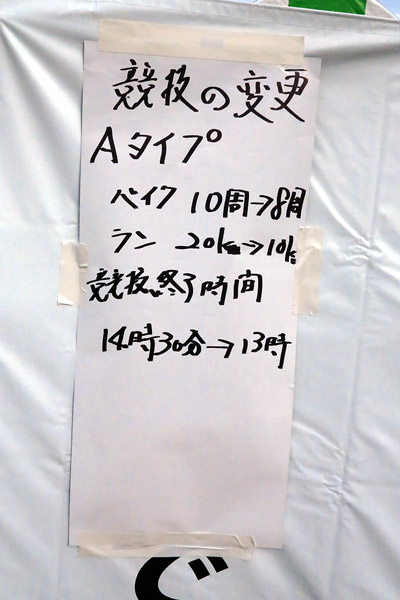 競技の変更
Aタイプ
バイク 10周→8周
ラン 20km→10k
競技終了時間
14時30分→13時
ぐ